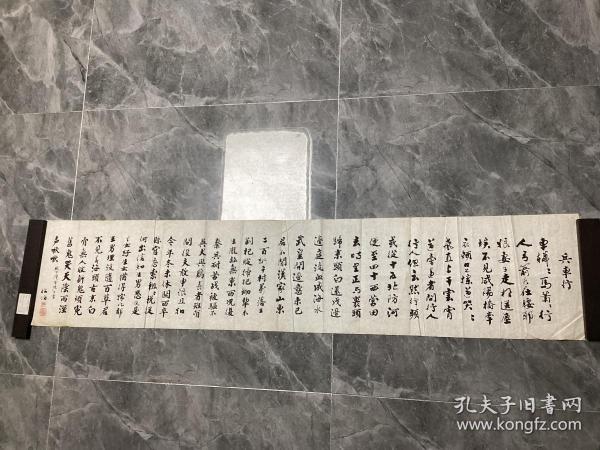 兵車行
車轔々馬蕭々行
人弓箭各在腰耶
孃妻子走相送塵
埃不見咸陽橋牽
衣頓足攔道哭哭
聲直上干雲霄
道旁過者問行人
行人但云點行頻
或從十五北防河
便至四十西營田
去時里正與裹頭
歸來頭白還戍邊
邊庭流血成海水
武皇開邊意未已
君不聞漢家山東
二百州千村萬落生
荊杞縱有健婦把鋤犁禾
生隴畝無東西況復
秦兵耐苦戰被驅不
異犬與雞長者雖有
問役夫敢申恨且如
今年冬未休關西卒
縣官急索租租稅從
何出信知生男惡反是
生女好生女猶得嫁比鄰
生男埋沒隨百草君
不見青海頭古來白
骨無人收新鬼煩冤
舊鬼哭天陰雨濕
聲啾啾
孔夫子旧书网
www.kongfz.com